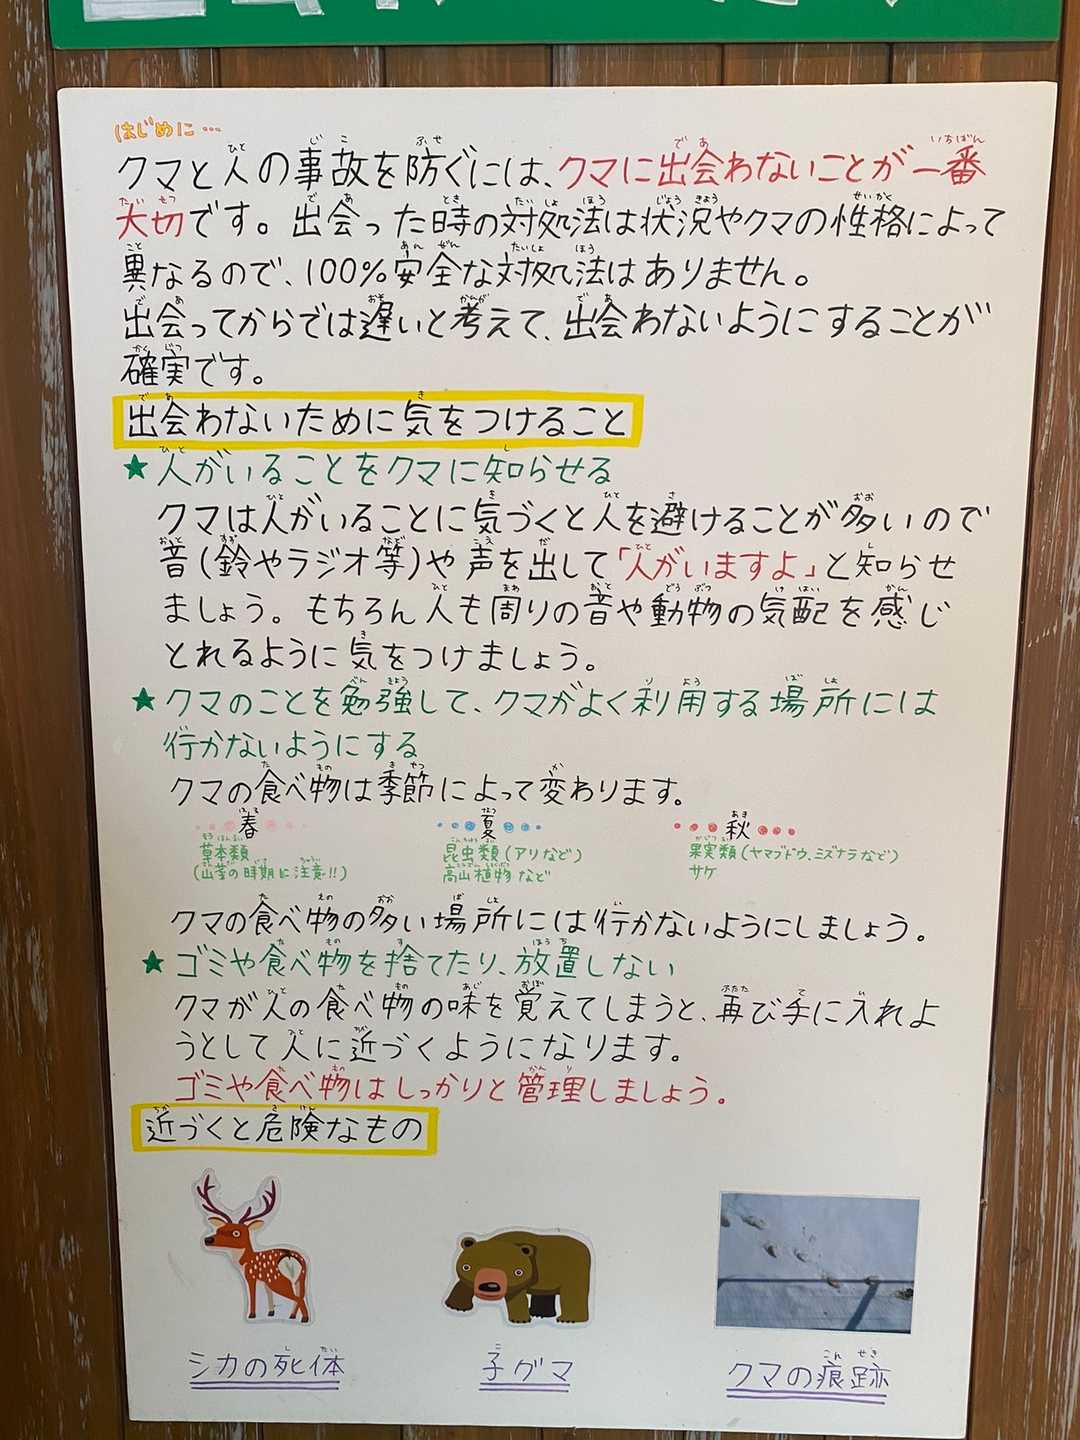 はじめに…
クマと人の事故を防ぐには、クマに出会わないことが一番
大切です。出会った時の対処法は状況やクマの性格によって
異なるので、100%安全な対処法はありません。
出会ってからでは遅いと考えて、出会わないようにすることが
確実です。
出会わないために気をつけること
★人がいることをクマに知らせる
クマは人がいることに気づくと人を避けることが多いので
音(鈴やラジオ等)や声を出して「人がいますよ」と知らせ
ましょう。もちろん人も周りの音や動物の気配を感じ
とれるように気をつけましょう。
★クマのことを勉強して、クマがよく利用する場所には
行かないようにする
クマの食べ物は季節によって変わります。
春 夏 秋
草本類 昆虫類(アリなど) 果実類(ヤマブドウ、ミズナラなど)
(山菜の時期に注意!!) 高山植物など サケ
クマの食べ物の多い場所には行かないようにしましょう。
★ゴミや食べ物を捨てたり、放置しない
クマが人の食べ物の味を覚えてしまうと、再び手に入れよ
うとして人に近づくようになります。
ゴミや食べ物はしっかりと管理しましょう。
近づくと危険なもの
シカの死体 子グマ クマの痕跡